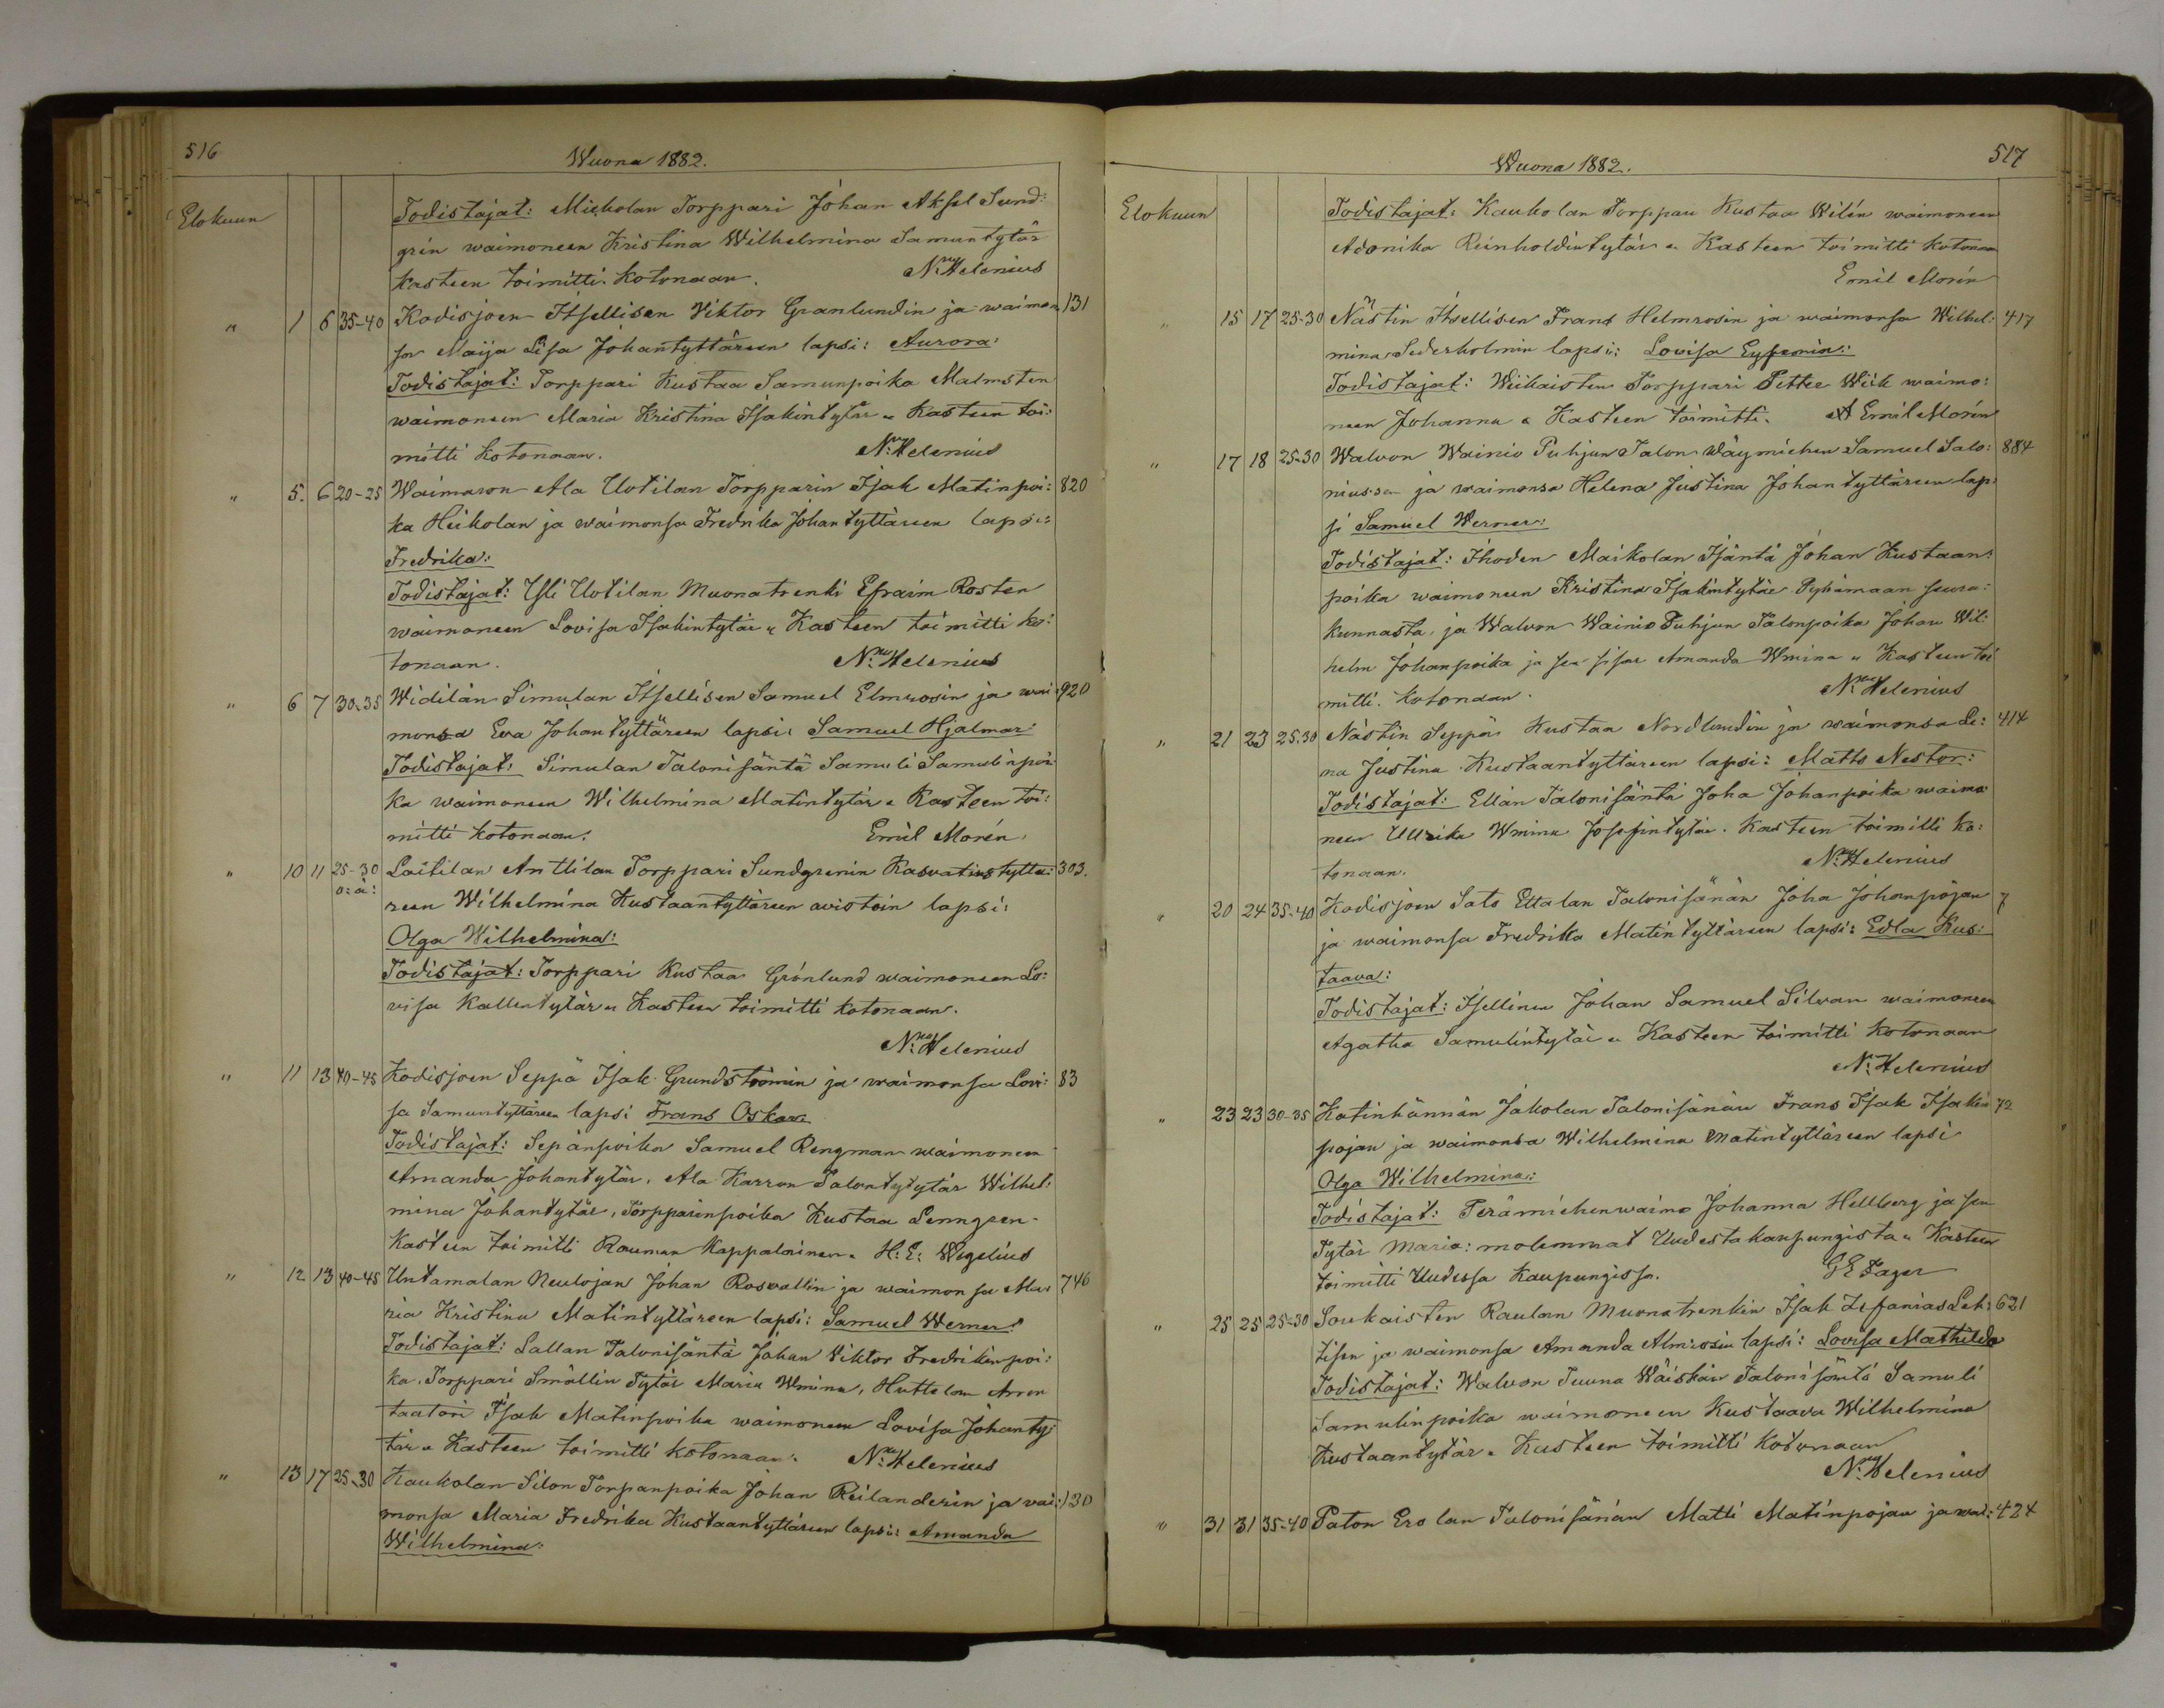 516
Wuona 1882.
Elokuun
Todistajat: Mickolan Torppari Johan Aksel Sund:
grén waimoneen Kristina Wilhelmina Samuntytär
kasteen toimitti kotonaan. N: Helenius
" 1 6 35-40 Kodisjoen Itsellisen Viktor Granlundin ja waimon 131
sa Maija Lisa Johantyttären lapsi: Aurora:
Todistajat: Torppari Kustaa Samunpoika Malmsten
waimoneen Maria Kristina Isakintytär " Kasteen toi:
mitti kotonaan. N: Helenius
" 5. 6 20-25 Waimaron Ala Uotilan Torpparin Isak Matinpoi: 820
ka Heikolan ja waimonsa Fredrika Johantyttären lapsi:
Fredrika:
Todistajat: Yli Uotilan Muonatrenki Efraim Rosten
waimoneen Lovisa Isakintytär " Kasteen toimitti ko:
tonaan. N: Helenius
" 6 7 30-35 Widilän Simulan Itsellisen Samuel Elmrosin ja wai 920
monsa Eva Johantyttären lapsi: Samuel Hjalmar
Todistajat: Simulan Talonisäntä Samuli Samulinpoi
ka waimoneen Wilhelmina Matintytär " Kasteen toi:
mitti kotonaan. Emil Morén.
" 10 11 25-30 Laitilan Anttilan Torppari Sundgrenin Kasvatustyttä: 303.
o: ä:
reen Wilhelmina Kustaantyttären avistoin lapsi:
Olga Wilhelmina:
Todistajat: Torppari Kustaa Grönlund waimoneen Lo:
visa Kallentytär " Kasteen toimitti kotonaan.
N: Helenius
" 11 13 40-45 Kodisjoen Seppä Isak Grundströmin ja waimonsa Lovi: 83
sa Samuntyttären lapsi Frans Oskar:
Todistajat: Sepänpoika Samuel Rengman waimoneen
Amanda Johantytär, Ala Karron Talontytytär Wilhel:
mina Johantytär, Torpparinpoika Kustaa Lenngren -
Kasteen toimitti Rauman Kappalainen " H: E: Wegelius
" 12 13 40-45 Untamalan Neulojan Johan Roswallin ja waimonsa Ma: 746
ria Kristina Matintyttären lapsi: Samuel Werner:
Todistajat: Sallan Talonisäntä Johan Viktor Fredrikinpoi:
ka, Torppari Smällin Tytär Maria Wmina, Huttolan Arren
taatori Isak Matinpoika waimoneen Lovisa Johanty
tär " Kasteen toimitti kotonaan. N: Helenius
" 13 17 25-30 Kaukolan Silon Torpanpoika Johan Reilanderin ja wai: 130
monsa Maria Fredrika Kustaantyttären lapsi: Amanda
Wilhelmina:
517
Wuona 1882.
Elokuun
Todistajat: Kaukolan Torppari Kustaa Wilén waimoneen
Adonika Reinholdintytär " Kasteen toimitti kotonaan
Emil Morén
" 15 17 25-30 Nästin Itsellisen Frans Helmrosin ja waimonsa Wilhel: 417
mina Sederholmin lapsi: Lovisa Eyfemia:
Todistajat: Wiikaisten Torppari Petter Wiik waimo:
neen Johanna " Kasteen toimitti. A Emil Morén
" 17 18 25-30 Walvon Wainio Puhjun Talon Wäymiehen Samuel Salo: 884
niuksen ja waimonsa Helena Justina Johantyttären lap
si Samuel Werner:
Todistajat: Ihoden Maikolan Isäntä Johan Kustaan:
poika waimoneen Kristina Isakintytär Pyhämaan seura:
kunnasta, ja Walvon Wainio Puhjun Talonpoika Johan Wil:
helm Johanpoika ja sen sisar Amanda Wmina " Kasteen toi
mitti kotonaan. N: Helenius
" 21 23 25-30 Nästin Seppä Kustaa Nordlundin ja waimonsa Le: 414
na Justina Kustaantyttären lapsi: Matts Nestor:
Todistajat: Ellän Talonisäntä Joha Johanpoika waimo
neen Ulrika Wmina Josefintytär. Kasteen toimitti ko:
tonaan. N: Helenius
" 20 24 35-40 Kodisjoen Sato Ettalan Talonisänän Joha Johanpojan 7
ja waimonsa Fredrika Matintyttären lapsi: Edla Kus:
taava:
Todistajat: Itsellinen Johan Samuel Silvan waimoneen
Agatha Samulintytär " Kasteen toimitti kotonaan
N: Helenius
" 23 23 30-35 Katinhännän Jakolan Talonisänän Frans Isak Isakin 72
pojan ja waimonsa Wilhelmina Matintyttären lapsi
Olga Wilhelmina:
Todistajat: Perämiehenwaimo Johanna Hellberg ja sen
Tytär Maria: molemmat Uudestakaupungista " Kasteen
toimitti Uudessa Kaupungissa. GE Fager
" 25 25 25-30 Soukaisten Raulan Muonatrenkin Isak Zefanias Leh: 621
tisen ja waimonsa Amanda Almrosin lapsi: Lovisa Mathilda
Todistajat: Walvon Tuuna Wäiskän Talonisäntä Samuli
Samulinpoika waimoneen Kustaava Wilhelmina
Kustaantytär " Kasteen toimitti kotonaan
N: Helenius
" 31 31 35-40 Paton Erolan Talonisänän Matti Matinpojan ja wai: 424